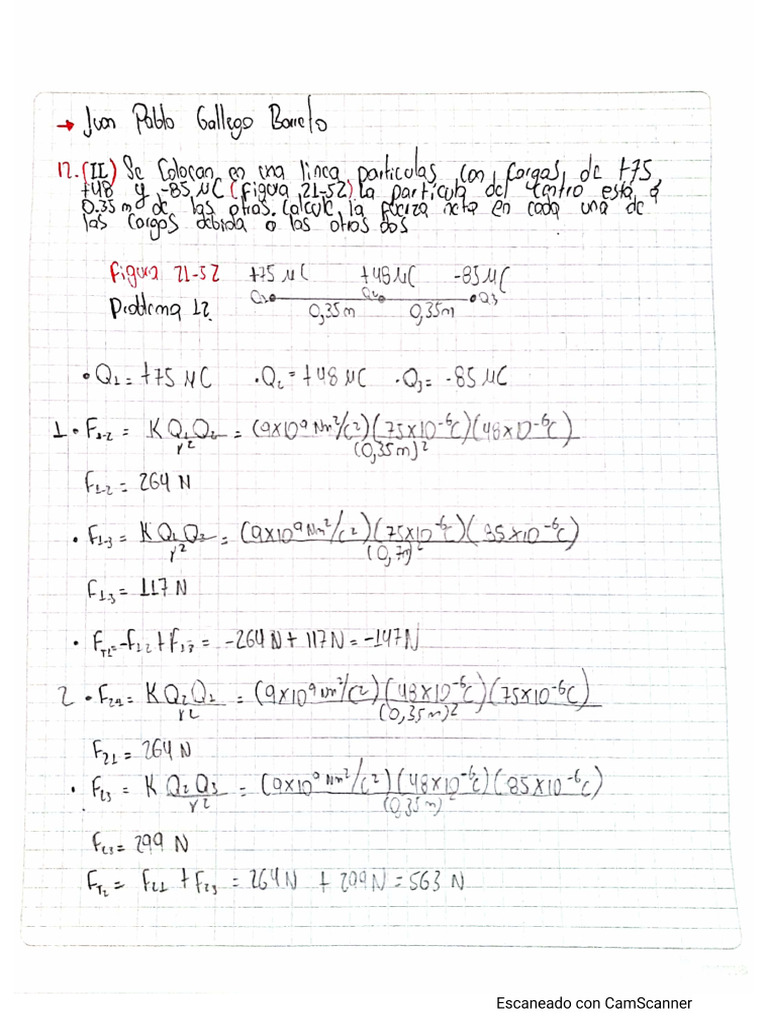 → Juan Pablo Gallego Barreto
12. (II) Se Colocan en una linea particulas con cargas de +75,
+48 y -85 µC (Figura 21-52) La particula del centro está a
0.35 m de las otras. Calcule la fuerza neta en cada una de
las cargas debida a las otras dos
Figura 21-52 +75 µC +48 µC -85 µC
Problema 12. Q1 Q2 Q3
0,35m 0,35m
• Q1 = +75 µC • Q2 = +48 µC • Q3 = -85 µC
1 • F1-2 = K Q1 Q2 / r² = (9x10⁹ Nm²/C²)(75x10⁻⁶C)(48x10⁻⁶C) / (0,35m)²
F1-2 = 264 N
• F1-3 = K Q1 Q3 / r² = (9x10⁹ Nm²/C²)(75x10⁻⁶C)(85x10⁻⁶C) / (0,7m)²
F1-3 = 117 N
• FT1 = -F12 + F13 = -264 N + 117 N = -147 N
2 • F21 = K Q2 Q1 / r² = (9x10⁹ Nm²/C²)(48x10⁻⁶C)(75x10⁻⁶C) / (0,35m)²
F21 = 264 N
• F23 = K Q2 Q3 / r² = (9x10⁹ Nm²/C²)(48x10⁻⁶C)(85x10⁻⁶C) / (0,35m)²
F23 = 299 N
FT2 = F21 + F23 = 264 N + 299 N = 563 N
Escaneado con CamScanner